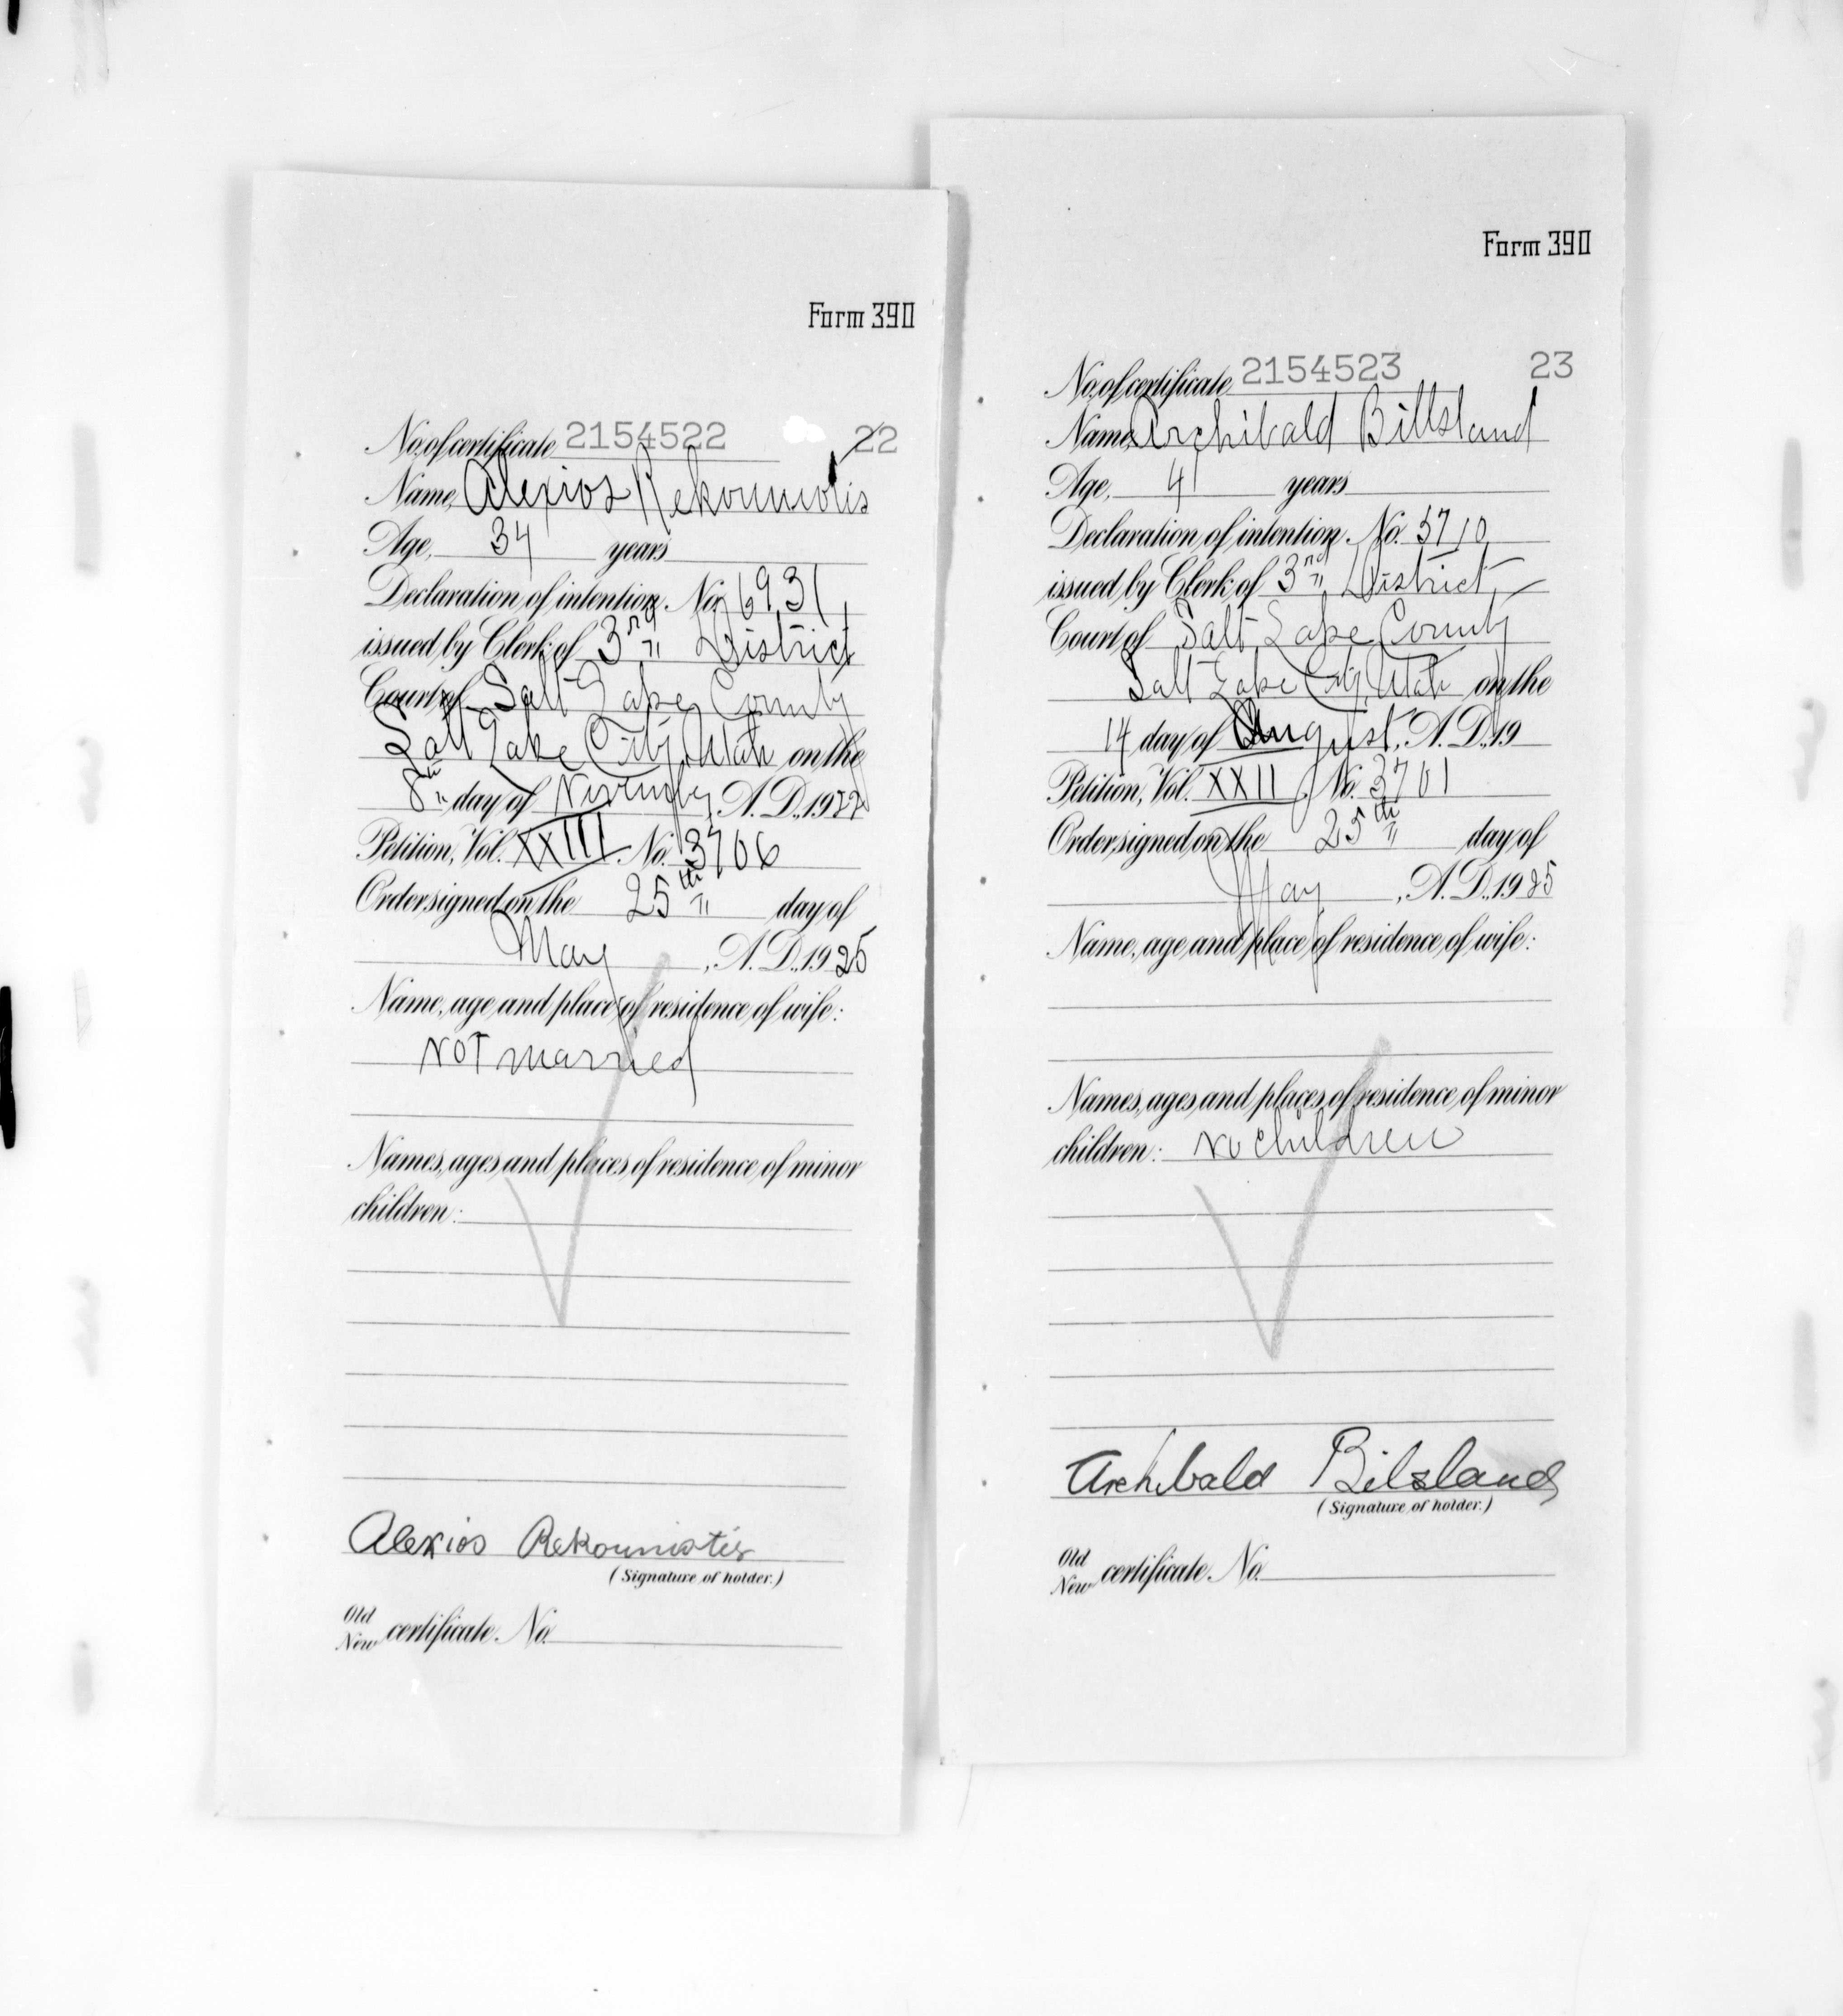 Form 390
No. of certificate 2154522 22
Name, Alexios Rekouniotis
Age, 34 years
Declaration of intention No. 6931
issued by Clerk of 3rd District
Court of Salt Lake County
Salt Lake City, Utah on the
8th day of November, A. D., 1922
Petition, Vol. XXIII No. 3706
Order signed on the 25th day of
May, A. D., 1925
Name, age and place of residence of wife:
Not married
Names, ages and places of residence of minor
children:
Alexios Rekouniotis
(Signature of holder.)
Old
New certificate No.
Form 390
No. of certificate 2154523 23
Name, Archibald Billsland
Age, 41 years
Declaration of intention No. 5710
issued by Clerk of 3rd District
Court of Salt Lake County
Salt Lake City, Utah on the
14 day of August, A. D., 19
Petition, Vol. XXII No. 3701
Order signed on the 25th day of
May, A. D., 1925
Name, age and place of residence of wife:
Names, ages and places of residence of minor
children: No children
Archibald Bilsland
(Signature of holder.)
Old
New certificate No.